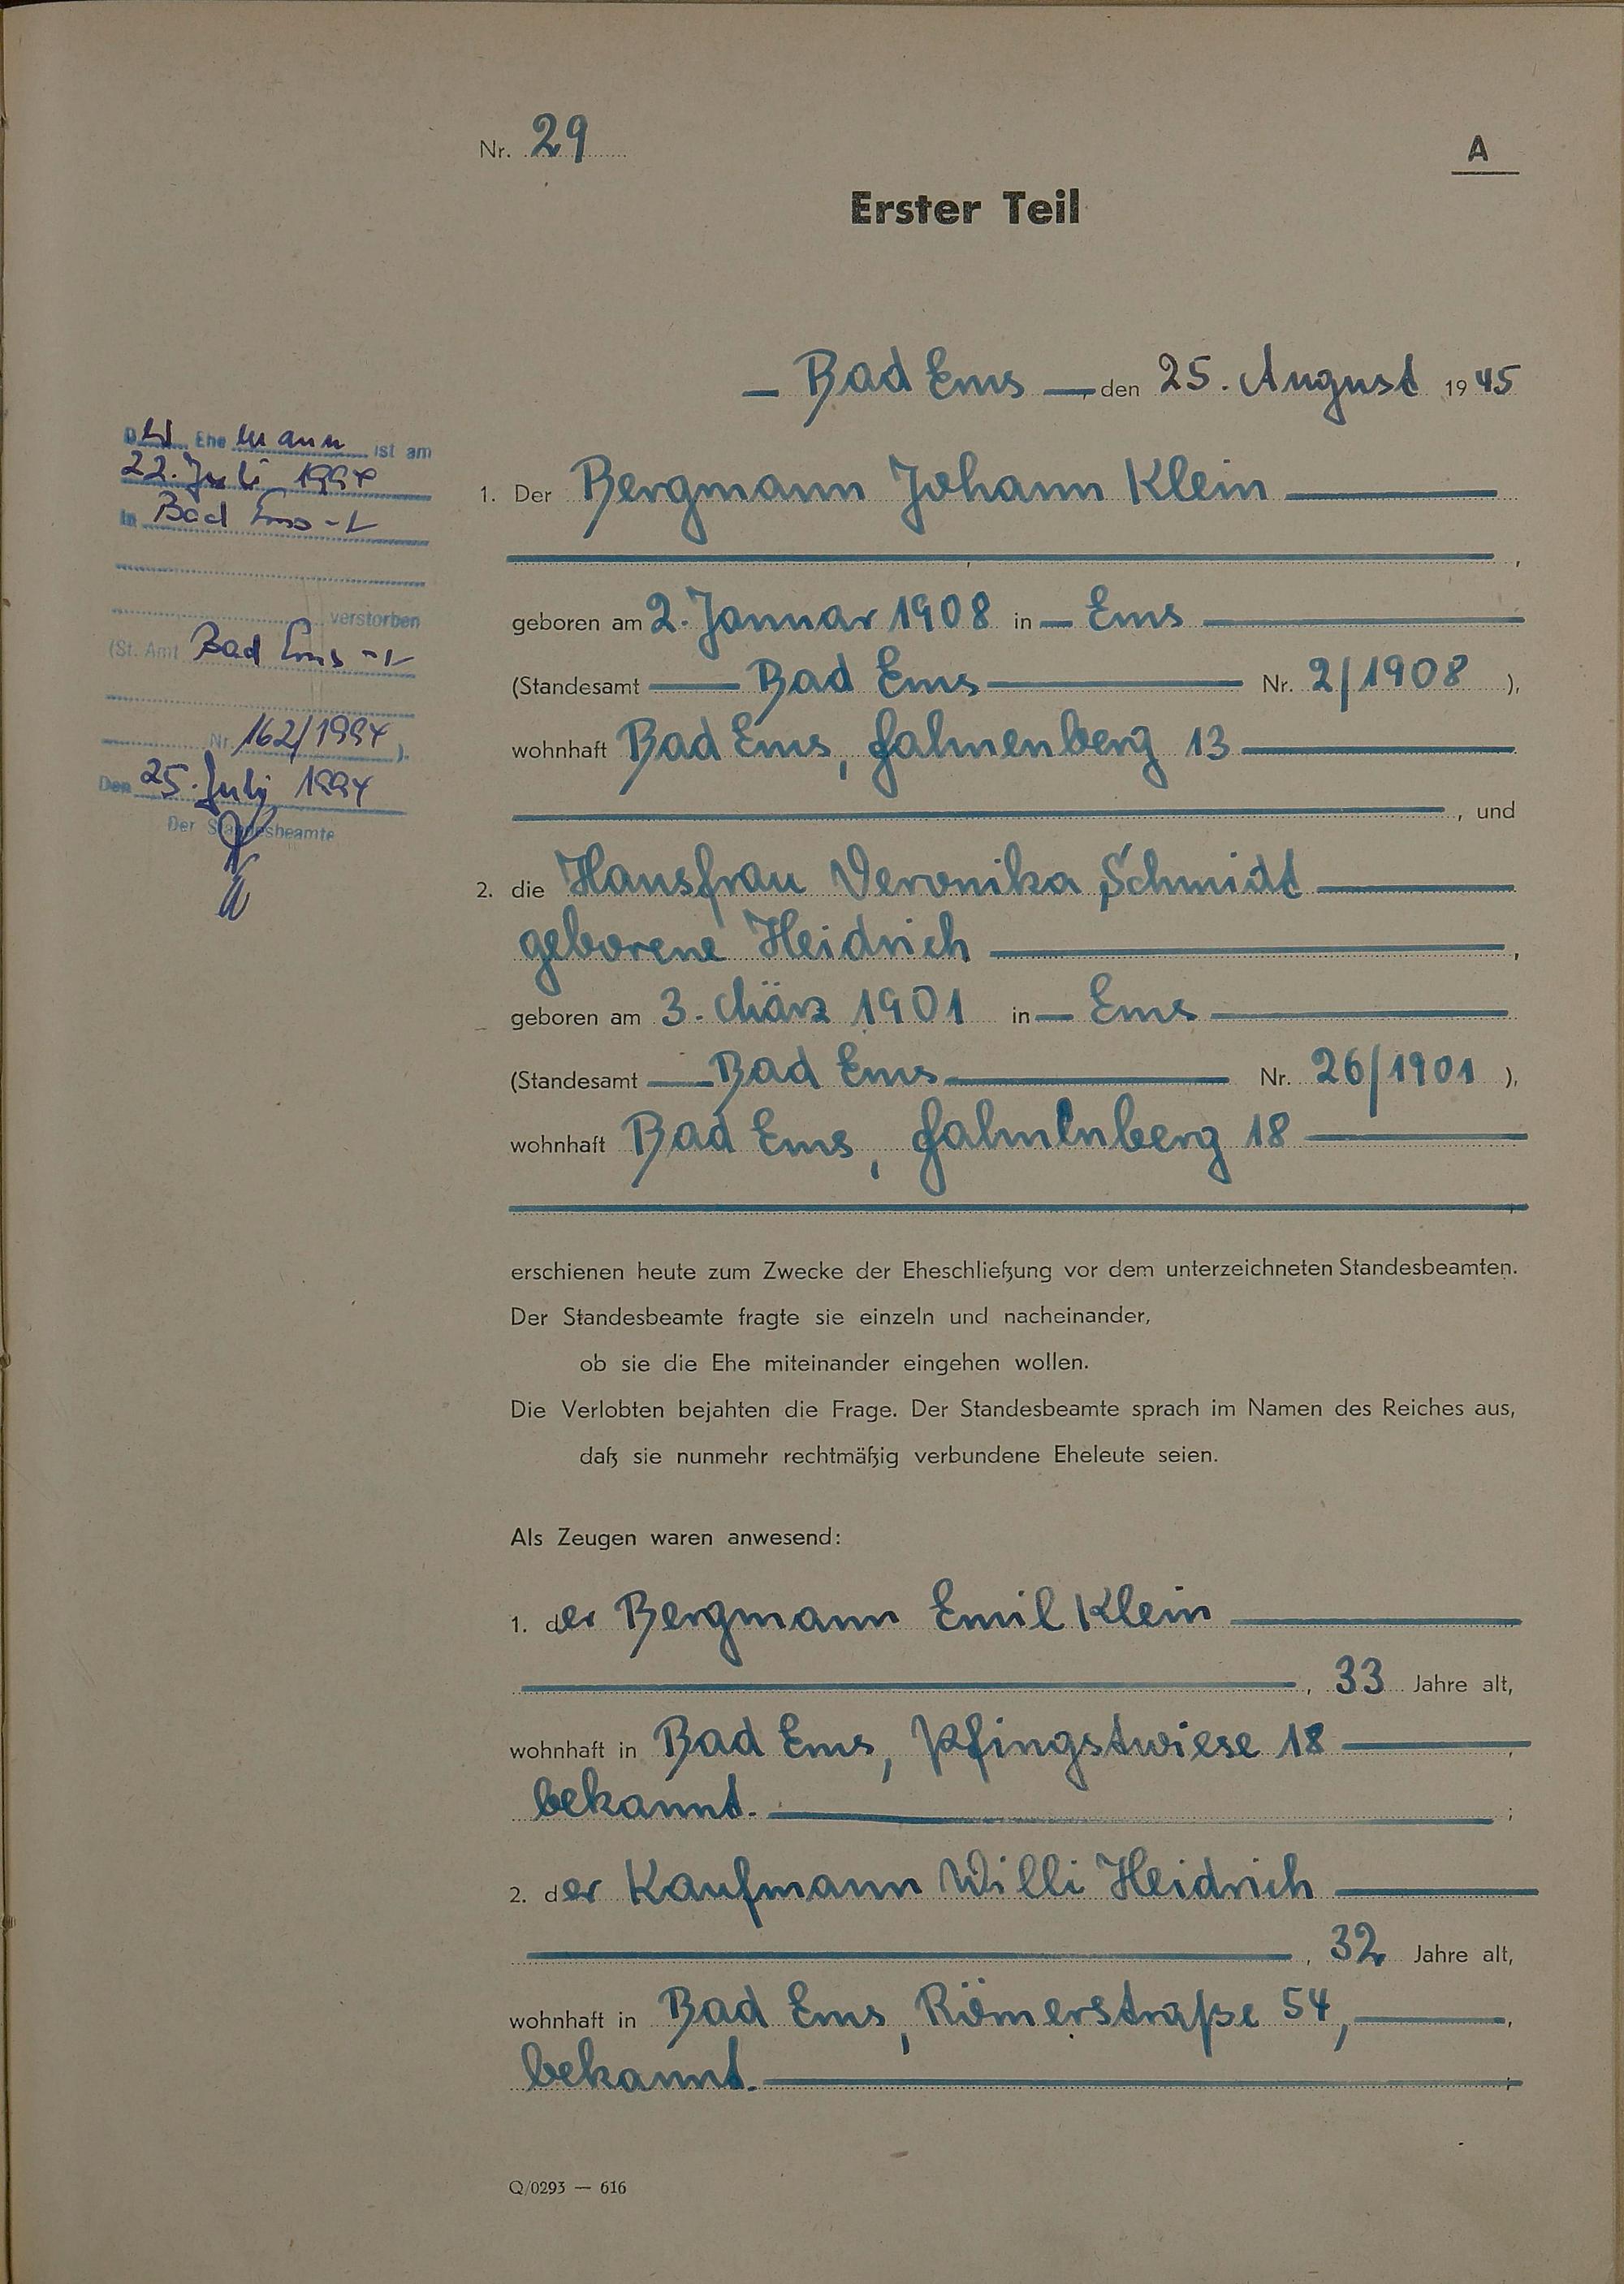 Nr. 29
A
Erster Teil
Bad Ems, den 25. August 1945
Der Ehemann ist am
22. Juli 1994
in Bad Ems
verstorben
(St. Amt Bad Ems
Nr. 162/1994 ).
Den 25. Juli 1994
Der Standesbeamte
1. Der Bergmann Johann Klein
,
geboren am 2. Januar 1908 in Ems
(Standesamt Bad Ems Nr. 2/1908 ),
wohnhaft Bad Ems, Fahnenberg 13
, und
2. die Hausfrau Veronika Schmidt
geborene Heidrich ,
geboren am 3. März 1901 in Ems
(Standesamt Bad Ems Nr. 26/1901 ),
wohnhaft Bad Ems, Fahnenberg 18
erschienen heute zum Zwecke der Eheschließung vor dem unterzeichneten Standesbeamten.
Der Standesbeamte fragte sie einzeln und nacheinander,
ob sie die Ehe miteinander eingehen wollen.
Die Verlobten bejahten die Frage. Der Standesbeamte sprach im Namen des Reiches aus,
daß sie nunmehr rechtmäßig verbundene Eheleute seien.
Als Zeugen waren anwesend:
1. der Bergmann Emil Klein
, 33 Jahre alt,
wohnhaft in Bad Ems, Pfingstwiese 18
bekannt. ;
2. der Kaufmann Willi Heidrich
, 32 Jahre alt,
wohnhaft in Bad Ems, Römerstraße 54,
bekannt.
Q/0293 — 616